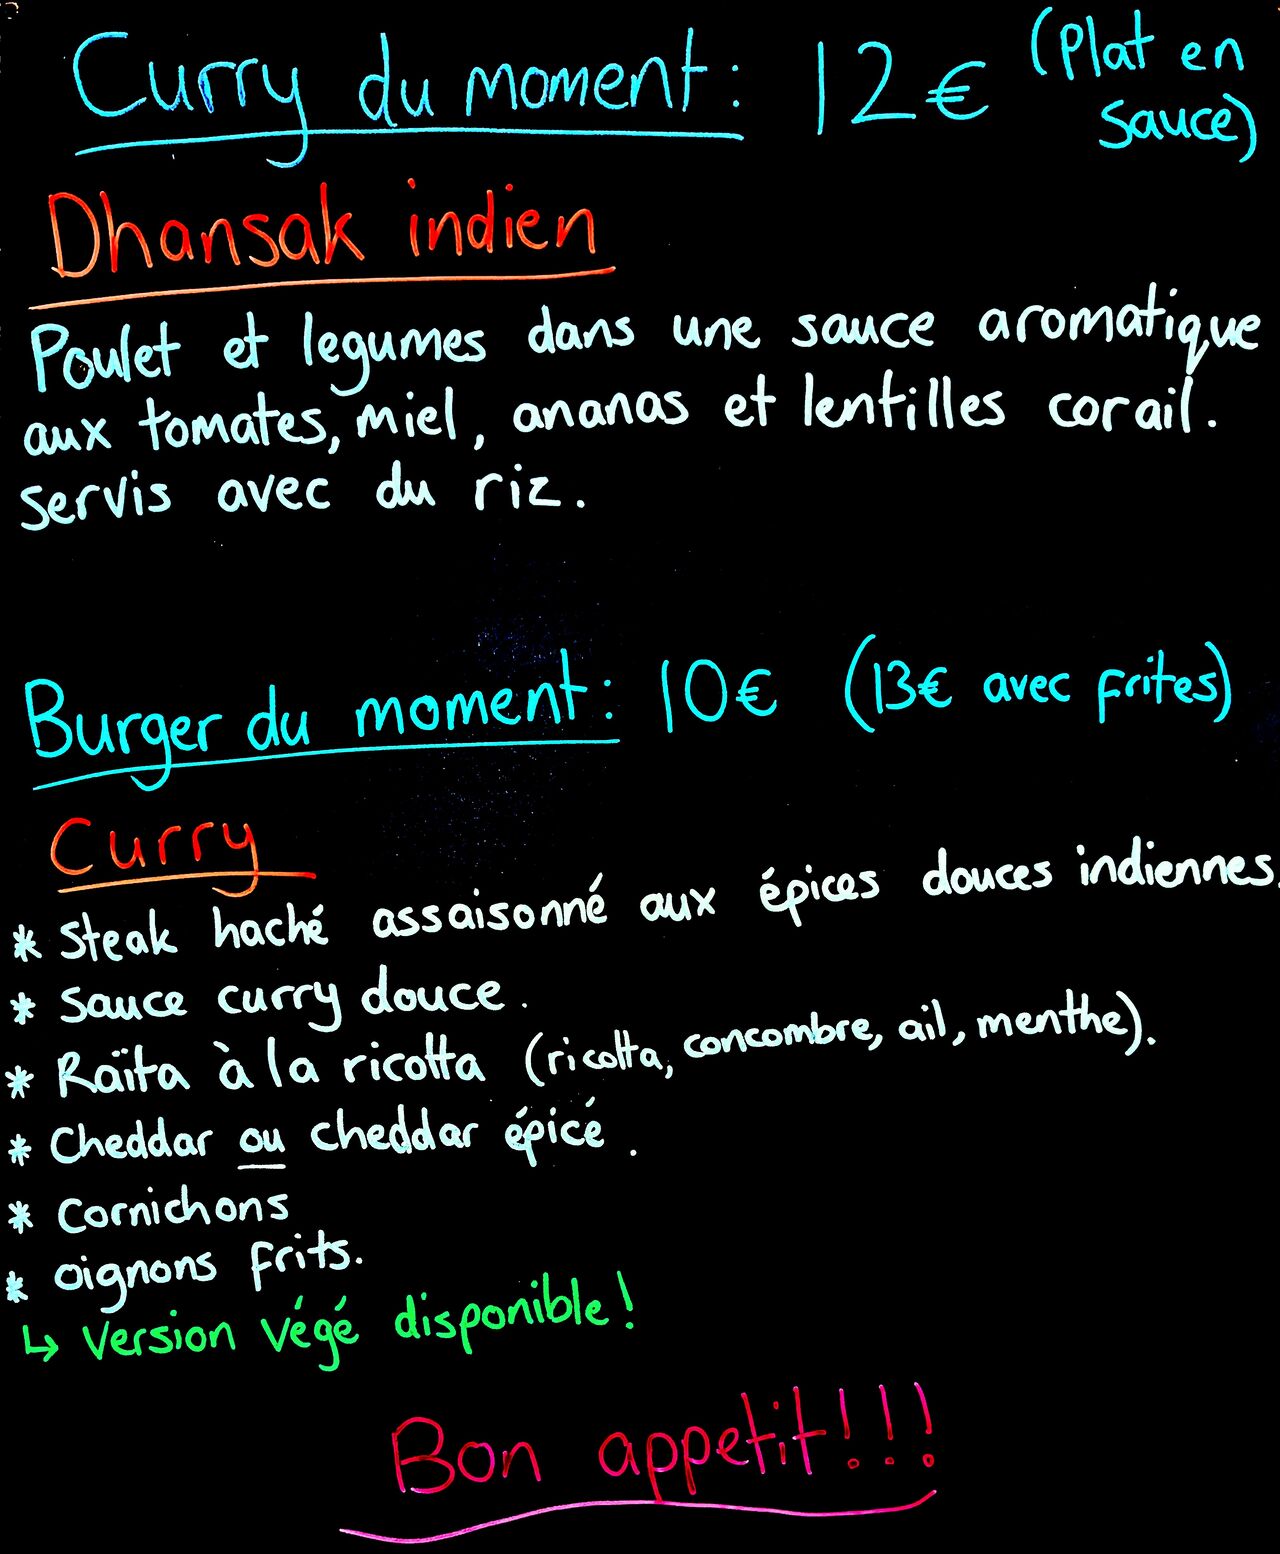 Curry du moment : 12€ (Plat en
sauce)
Dhansak indien
Poulet et legumes dans une sauce aromatique
aux tomates, miel, ananas et lentilles corail.
servis avec du riz.
Burger du moment : 10€ (13€ avec frites)
Curry
* Steak haché assaisonné aux épices douces indiennes.
* Sauce curry douce.
* Raïta à la ricotta (ricotta, concombre, ail, menthe).
* Cheddar ou cheddar épicé.
* Cornichons
* oignons frits.
↳ Version végé disponible !
Bon appetit!!!